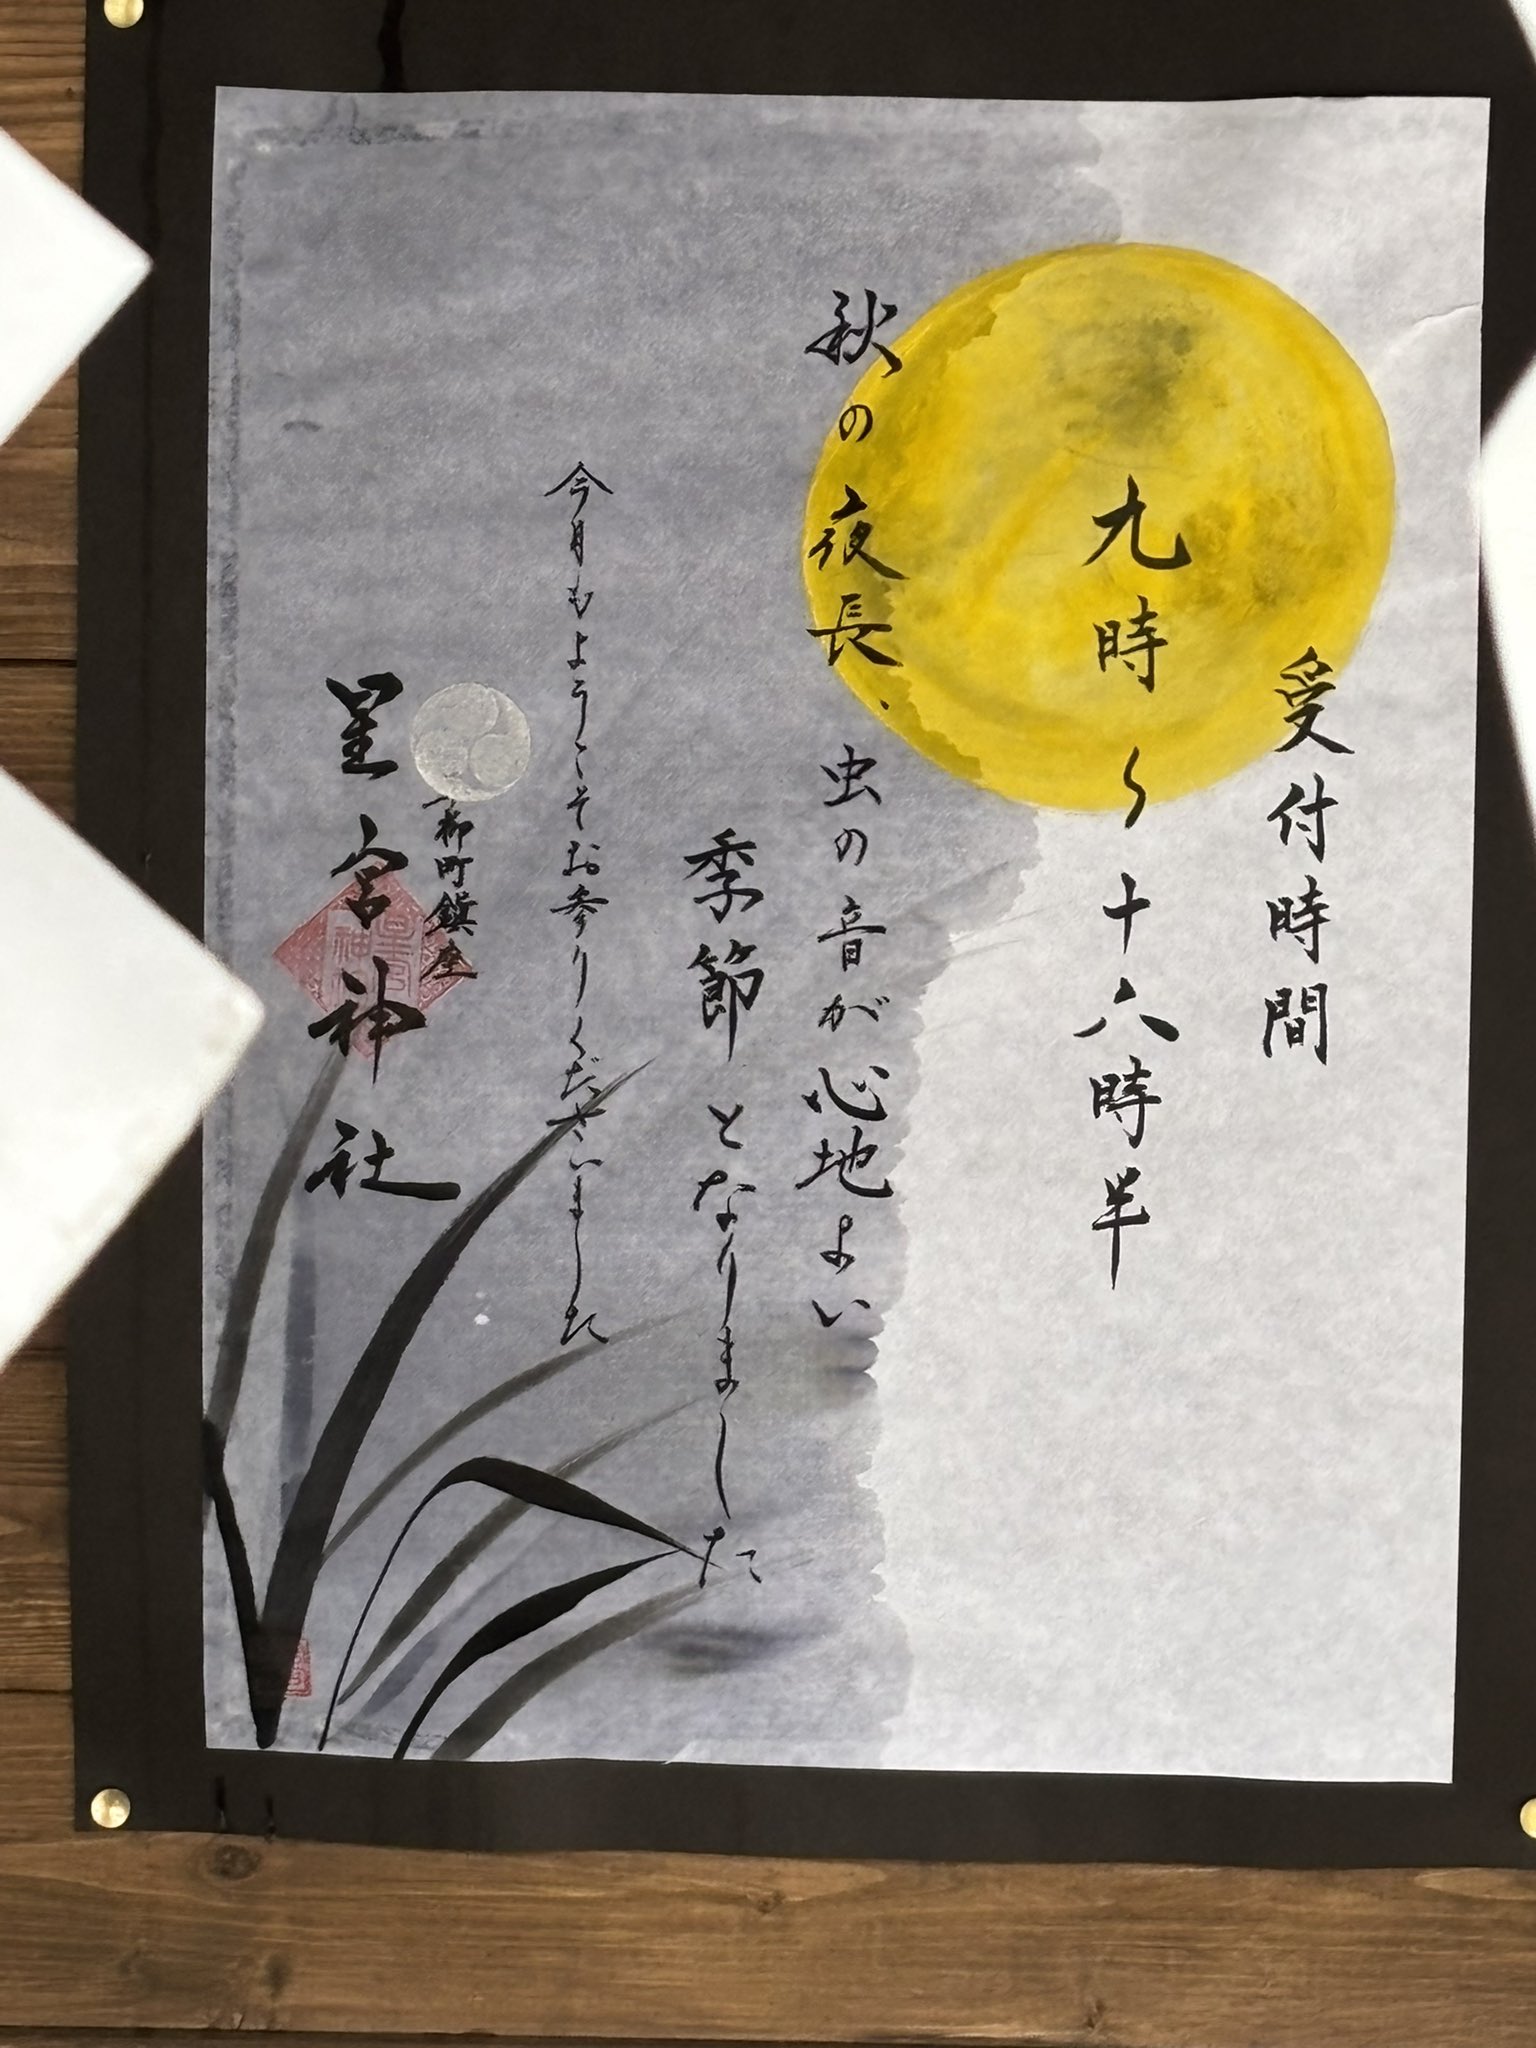 受付時間
九時〜十六時半
秋の夜長、虫の音が心地よい
季節となりました
今月もようこそお参りくださいました
下柳町鎮座
星宮神社